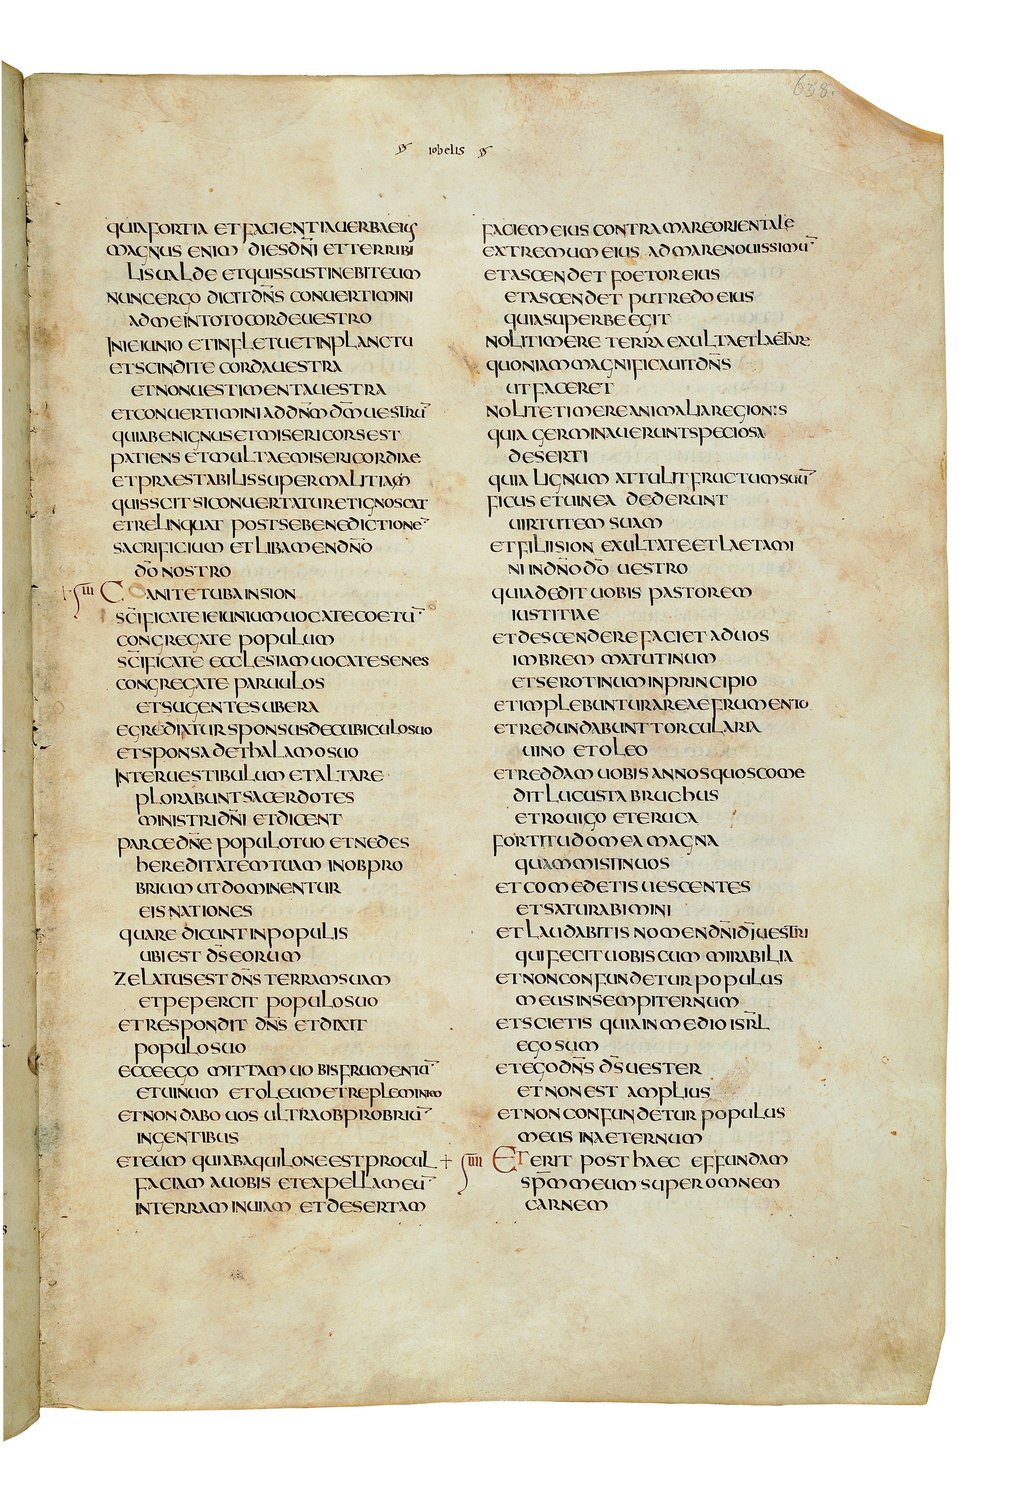 638.
iobelis
QUIAFORTIA ETFACIENTIAUERBAEIUS
MAGNUS ENIM DIESDN̄I ETTERRIBI
LISUALDE ETQUISSUSTINEBITEUM
NUNCERGO DICITDN̄S CONUERTIMINI
ADMEINTOTOCORDEUESTRO
INIEIUNIO ETINFLETUETINPLANCTU
ETSCINDITE CORDAUESTRA
ETNONUESTIMENTAUESTRA
ETCONUERTIMINIADDN̄MDM̄UESTRŪ
QUIABENIGNUSETMISERICORSEST
PATIENS ETMULTAEMISERICORDIAE
ETPRAESTABILISSUPERMALITIAM
QUISSCITSICONUERTATURETIGNOSCAT
ETRELINQUAT POSTSEBENEDICTIONĒ
SACRIFICIUM ETLIBAMENDN̄O
DŌNOSTRO
IIII CANITETUBAINSION
SC̄IFICATEIEIUNIUMUOCATECOETŪ
CONGREGATE POPULUM
SC̄IFICATE ECCLESIAMUOCATESENES
CONGREGATE PARUULOS
ETSUGENTESUBERA
EGREDIATURSPONSUSDECUBICULOSUO
ETSPONSADETHALAMOSUO
INTERUESTIBULUM ETALTARE
PLORABUNTSACERDOTES
MINISTRIDN̄I ETDICENT
PARCEDN̄E POPULOTUO ETNEDES
HEREDITATEMTUAM INOBPRO
BRIUM UTDOMINENTUR
EISNATIONES
QUARE DICUNTINPOPULIS
UBIEST DS̄EORUM
ZELATUSEST DN̄S TERRAMSUAM
ETPEPERCIT POPULOSUO
ETRESPONDIT DN̄S ETDIXIT
POPULOSUO
ECCEEGO MITTAMUOBISFRUMENTŪ
ETUINUM ETOLEUMETREPLEMINIEO
ETNONDABOUOS ULTRAOBPROBRIŪ
INGENTIBUS
ETEUM QUIABAQUILONEESTPROCUL
FACIAM AUOBIS ETEXPELLAMEŪ
INTERRAMINUIAM ETDESERTAM
FACIEMEIUS CONTRAMAREORIENTALE
EXTREMUMEIUS ADMARENOUISSIMŪ
ETASCENDET FOETOREIUS
ETASCENDET PUTREDOEIUS
QUIASUPERBEEGIT
NOLITIMERE TERRA EXULTAETLAETARE
QUONIAMMAGNIFICAUITDN̄S
UTFACERET
NOLITETIMEREANIMALIAREGIONIS
QUIA GERMINAUERUNTSPECIOSA
DESERTI
QUIA LIGNUM ATTULITFRUCTUMSUŪ
FICUS ETUINEA DEDERUNT
UIRTUTEM SUAM
ETFILIISION EXULTATEETLAETAMI
NI INDN̄ODŌ UESTRO
QUIADEDIT UOBIS PASTOREM
IUSTITIAE
ETDESCENDEREFACIETADUOS
IMBREM MATUTINUM
ETSEROTINUMINPRINCIPIO
ETIMPLEBUNTURAREAEFRUMENTO
ETREDUNDABUNTTORCULARIA
UINO ETOLEO
ETREDDAM UOBIS ANNOSQUOSCOME
DITLUCUSTABRUCHUS
ETROUIGO ETERUCA
FORTITUDOMEAMAGNA
QUAMMISIINUOS
ETCOMEDETIS UESCENTES
ETSATURABIMINI
ETLAUDABITIS NOMENDN̄IDĪUESTRI
QUIFECITUOBISCUM MIRABILIA
ETNONCONFUNDETURPOPULUS
MEUSINSEMPITERNUM
ETSCIETIS QUIAINMEDIOISRL̄
EGOSUM
ETEGODN̄S DS̄UESTER
ETNONEST AMPLIUS
ETNONCONFUNDETUR POPULUS
MEUS INAETERNUM
IIII ETERIT POSTHAEC EFFUNDAM
SPM̄MEUMSUPEROMNEM
CARNEM